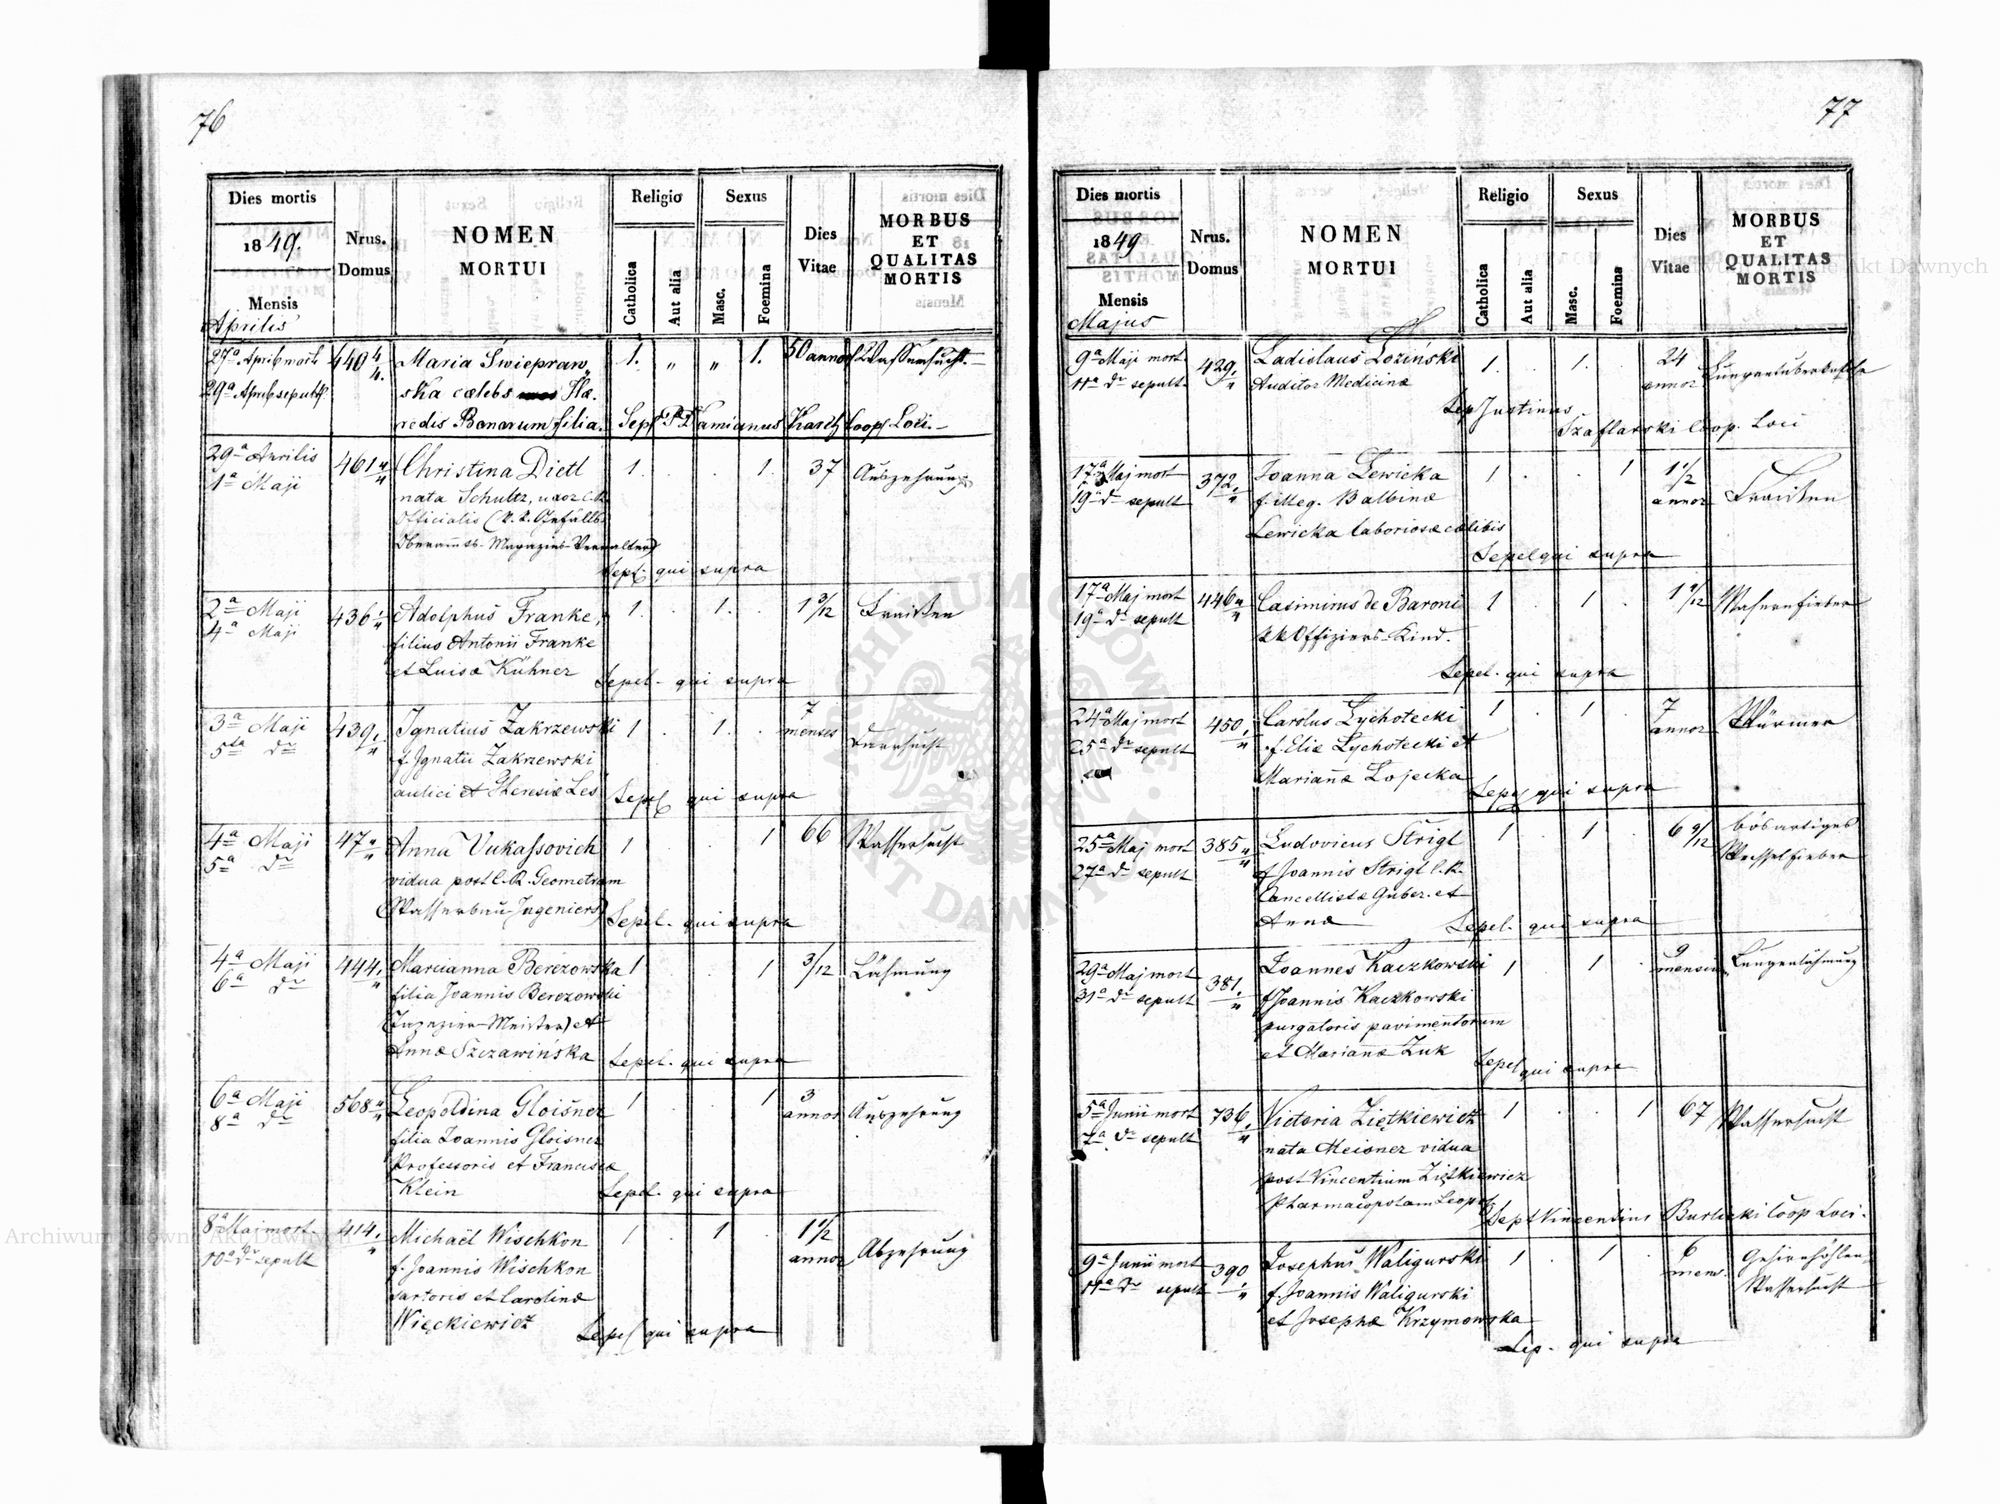 76
Dies mortis
1849.
Mensis
Aprilis
Nrus.
Domus
NOMEN
MORTUI
Religio
Catholica
Aut alia
Sexus
Masc.
Foemina
Dies
Vitae
MORBUS
ET
QUALITAS
MORTIS
27a April mort.
29a April sepult.
440 4/4.
Maria Świepraw„
ska cælebs Hæ„
redis Bonorum filia.
1. „ „ 1.
50 annor
Wassersucht.
Sept P. Damianus Kasetz Coop. Loci.
29a Aprilis
1a Maji
461
Christina Dietl
nata Schultz, uxor C.R.
Officialis (k.k. Gefälls
Oberamts-Magazins-Verwalter)
1. . . 1.
37
Auszehrung
Sept. qui supra
2a Maji
4a Maji
436
Adolphus Franke,
filius Antonii Franke
et Luisæ Kühner
1. . 1. .
1 3/12
Fraißen
Sepel. qui supra
3a Maji
5ta dto
439
Ignatius Zakrzewski
f. Ignatii Zakrzewski
aulici et Theresiæ Les
1 . 1. .
7
menses
Darrsucht
Sepel qui supra
4a Maji
5a dto
47
Anna Vukassovich
vidua post C.R. Geometram
(Wasserbau-Ingeniers)
1 . . 1
66
Wassersucht
Sepel. qui supra
4a Maji
6a dto
444
Marcianna Berezowska
filia Joannis Berezowski
Meister) et
Annæ Szczawińska
1 . . 1
3/12
Lähmung
Sepel. qui supra
6a Maji
8a dto
568
Leopoldina Gloisner
filia Joannis Gloisner
Professoris et Franciscæ
Klein
1 . . 1
3
annor
Auszehrung
Sepel. qui supra
8a Maj mort.
10a dto sepult
414
Michaël Wischkon
f. Joannis Wischkon
sartoris et Carolinæ
Więckiewicz
1 . 1 .
1 1/2
annor
Abzehrung
Sepel qui supra
77
Dies mortis
1849
Mensis
Majus
Nrus.
Domus
NOMEN
MORTUI
Religio
Catholica
Aut alia
Sexus
Masc.
Foemina
Dies
Vitae
MORBUS
ET
QUALITAS
MORTIS
9a Maji mort
11a dto sepult.
429
Ladislaus Łoziński
Auditor Medicinæ
1. . 1. .
24
annor
Lungentuberkulose
Sep Justinus
Szaflarski Coop. Loci
17a Maj mort
19a dto sepult
372
Joanna Lewicka
f. illeg. Balbinæ
Lewicka laboriosæ cælibis
1 . . 1
1 1/2
annor
Fraißen
Sepel qui supra
17a Maj mort
19a dto sepult
446
Casimirus de Baroni
kk Offiziers-Kind.
1 . 1 .
Sepel. qui supra
24a Maj mort
25a dto sepult
450
Carolus Lychotecki
f. Eliæ Lychotecki et
Mariannæ Łojecka
1 . 1 .
7
annor
Würmer
Sepel qui supra
25a Maj mort
27a dto sepult
385
Ludovicus Strigl
f Joannis Strigl C.R.
Cancellistæ Guber. et
Annæ
1 . 1 .
6 9/12
bösartiges
Wechselfieber
Sepel. qui supra
29a Maj mort
31a dto sepult
381
Joannes Kaczkowski
f Joannis Kaczkowski
purgatoris pavimentorum
et Mariannæ Żuk
1 . 1 .
9
menses
Lungenlähmung
Sepel qui supra
5a Junii mort
7a dto sepult
736
Victoria Ziętkiewicz
nata Meisner vidua
post Vincentium Ziętkiewicz
Pharmacopolam Leopol
1 . . 1
67
Wassersucht
Sept Vincentius Burlicki Coop Loci.
9a Junii mort
11a dto sepult
390
Josephus Waligurski
f. Joannis Waligurski
et Josephæ Krzymowska
1 . 1 .
6
mens.
Gehirnhöhlen
Wassersucht
Sep. qui supra
ARCHIWUM GŁÓWNE AKT DAWNYCH
Archiwum Główne Akt Dawnych
Archiwum Główne Akt Dawnych